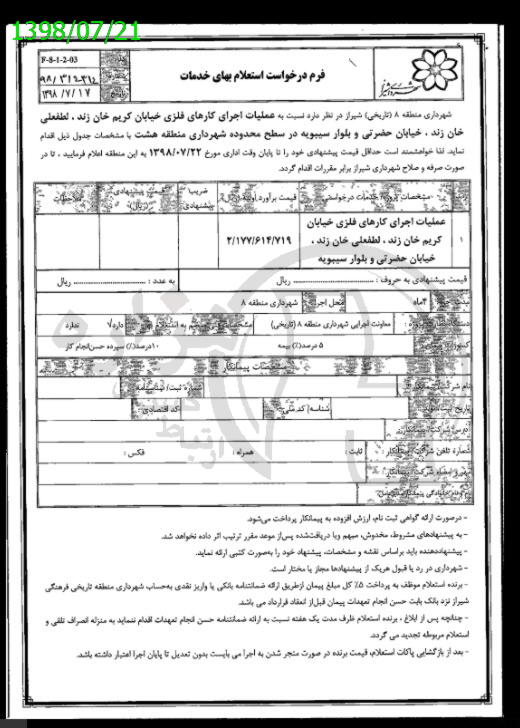 1398/07/21
F-8-1-2-03
۹۸/۳۱۲-۳۱۲
۱۳۹۸/۷/۱۷
فرم درخواست استعلام بهای خدمات
شهرداری منطقه ۸ (تاریخی) شیراز در نظر دارد نسبت به عملیات اجرای کارهای فلزی خیابان کریم خان زند ، لطفعلی
خان زند ، خیابان حضرتی و بلوار سیبویه در سطح محدوده شهرداری منطقه هشت با مشخصات جدول ذیل اقدام
نماید. لذا خواهشمند است حداقل قیمت پیشنهادی خود را تا پایان وقت اداری مورخ ۱۳۹۸/۰۷/۲۲ به این منطقه اعلام فرمایید ، تا در
صورت صرفه و صلاح شهرداری شیراز برابر مقررات اقدام گردد.
مشخصات پروژه/خدمات درخواستی قیمت برآورد اولیه (ریال) ضریب پیشنهادی قیمت پیشنهادی (ریال) ملاحظات
۱ عملیات اجرای کارهای فلزی خیابان
کریم خان زند ، لطفعلی خان زند ،
خیابان حضرتی و بلوار سیبویه
۲/۱۷۷/۶۱۴/۷۱۹
قیمت پیشنهادی به حروف : ........ ریال به عدد : ........ ریال
۴ماه محل اجرا شهرداری منطقه ۸
معاونت اجرایی شهرداری منطقه ۸ (تاریخی) دارد√ ندارد
۵ درصد(٪) بیمه ۱۰درصد(٪) سپرده حسن‌انجام کار
مشخصات پیمانکار
نام شرکت/پیمانکار: شماره ثبت/شناسنامه
تاریخ ثبت/تولد: شناسه/کدملی: کد اقتصادی:
آدرس شرکت/پیمانکار:
شماره تلفن شرکت/پیمانکار : ثابت : همراه : فکس :
مهر و امضاء شرکت/پیمانکار:
- درصورت ارائه گواهی ثبت نام، ارزش افزوده به پیمانکار پرداخت می‌شود.
- به پیشنهادهای مشروط، مخدوش، مبهم ویا دریافت‌شده پس‌از موعد مقرر ترتیب اثر داده نخواهد شد.
- پیشنهاددهنده باید براساس نقشه و مشخصات، پیشنهاد خود را به‌صورت کتبی ارائه نماید.
- شهرداری در رد یا قبول هریک از پیشنهادها مجاز یا مختار است.
- برنده استعلام موظف به پرداخت ۵٪ کل مبلغ پیمان ازطریق ارائه ضمانتنامه بانکی یا واریز نقدی به‌حساب شهرداری منطقه تاریخی فرهنگی
شیراز نزد بانک بابت حسن انجام تعهدات پیمان قبل‌از انعقاد قرارداد می باشد.
- چنانچه پس از ابلاغ ، برنده استعلام ظرف مدت یک هفته نسبت به ارائه ضمانتنامه حسن انجام تعهدات اقدام ننماید به منزله انصراف تلقی و
استعلام مربوطه تجدید می گردد.
- بعد از بازگشایی پاکات استعلام، قیمت برنده در صورت منجر شدن به اجرا می بایست بدون تعدیل تا پایان اجرا اعتبار داشته باشد.